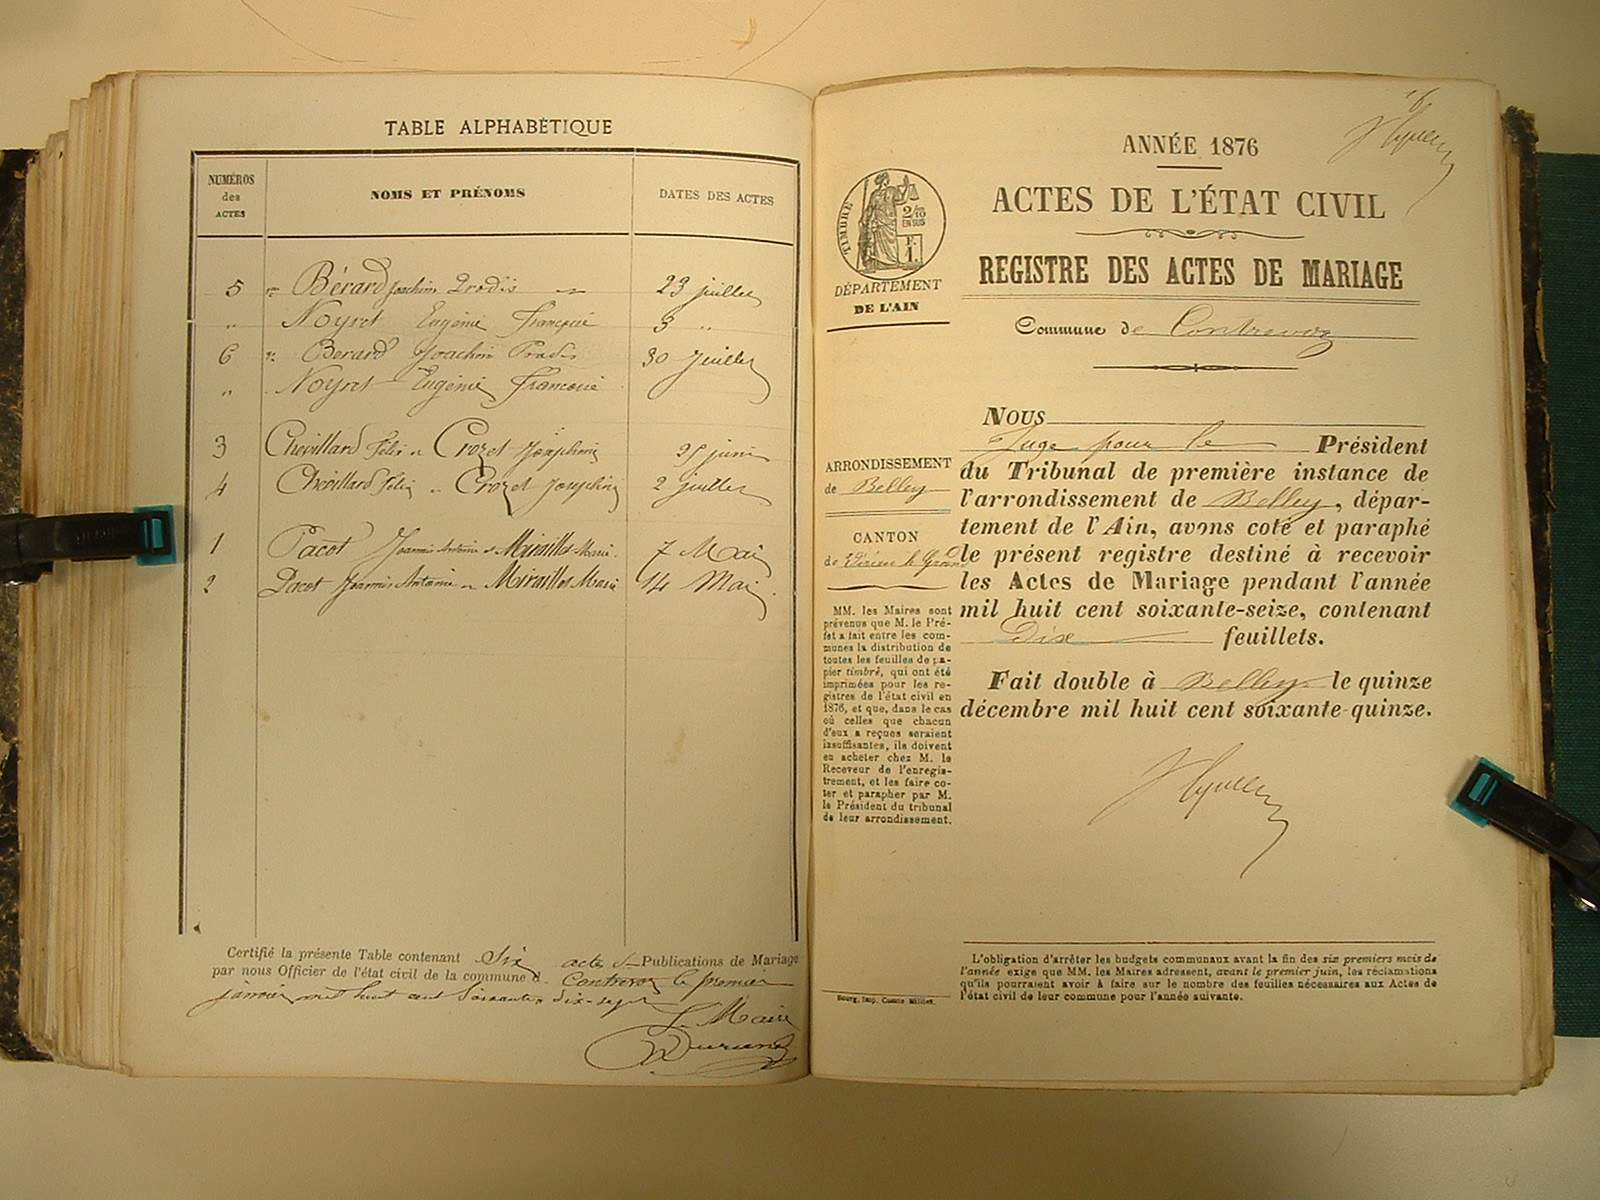 TABLE ALPHABÉTIQUE
NUMÉROS
des
ACTES
NOMS ET PRÉNOMS
DATES DES ACTES
5 Bérard Joachim 23 juillet
" Noyret Eugénie 3 "
6 Berard Joachim 30 Juillet
" Noyret Eugénie
3 Chevillard Félix Crozet Joséphine 25 juin
4 Chevillard Félix Crozet Joséphine 2 juillet
1 Pacot Jeannis Antoine Miraillet Marie 7 Mai
2 Pacot Jeannis Antoine Miraillet Marie 14 Mai
Certifié la présente Table contenant Six actes de Publications de Mariage
par nous Officier de l'état civil de la commune d. Contrevoz le premier
janvier mil huit cent soixante dix-sept
Le Maire
ANNÉE 1876
ACTES DE L'ÉTAT CIVIL
REGISTRE DES ACTES DE MARIAGE
Commune de Contrevoz
TIMBRE
2/10
EN SUS
F.
1.
DÉPARTEMENT
DE L'AIN
ARRONDISSEMENT
de Belley
CANTON
de Virieu le Grand
MM. les Maires sont
prévenus que M. le Pré-
fet a fait entre les com-
munes la distribution de
toutes les feuilles de pa-
pier timbré, qui ont été
imprimées pour les re-
gistres de l'état civil en
1876, et que, dans le cas
où celles que chacun
d'eux a reçues seraient
insuffisantes, ils doivent
en acheter chez M. le
Receveur de l'enregis-
trement, et les faire co-
ter et parapher par M.
le Président du tribunal
de leur arrondissement.
Bourg, Imp. Comte Milliet.
NOUS
Juge pour le Président
du Tribunal de première instance de
l'arrondissement de Belley, dépar-
tement de l'Ain, avons coté et paraphé
le présent registre destiné à recevoir
les Actes de Mariage pendant l'année
mil huit cent soixante-seize, contenant
Dix feuillets.
Fait double à Belley le quinze
décembre mil huit cent soixante-quinze.
L'obligation d'arrêter les budgets communaux avant la fin des six premiers mois de
l'année exige que MM. les Maires adressent, avant le premier juin, les réclamations
qu'ils pourraient avoir à faire sur le nombre des feuilles nécessaires aux Actes de
l'état civil de leur commune pour l'année suivante.